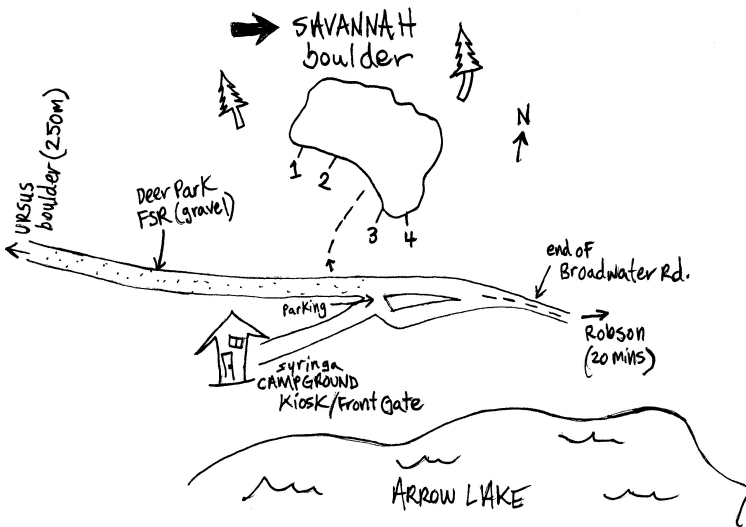 SAVANNAH
boulder
N
1
2
3
4
URSUS
boulder (250m)
Deer Park
FSR (gravel)
end of
Broadwater Rd.
Parking
Robson
(20 mins)
Syringa
CAMPGROUND
Kiosk/Front Gate
ARROW LAKE